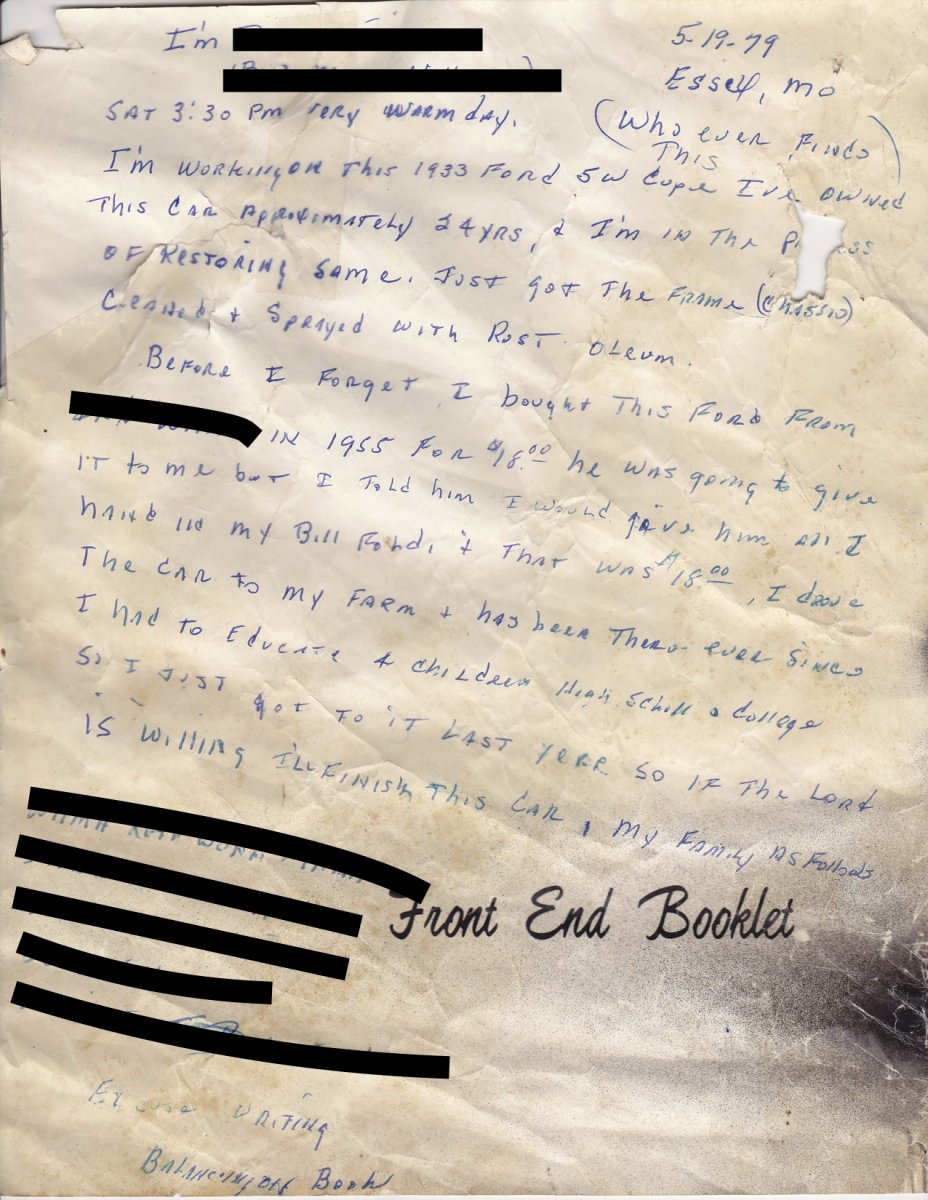 I'm
5-19-79
Essex, Mo
SAT 3:30 PM very warm day.
(Who ever Finds
This)
I'm working on This 1933 Ford 5W Cupe I've owned
This Car Approximately 24 yrs, & I'm in The P ess
OF RESTORING Same. Just got The Frame (Chassis)
Cleaned & Sprayed with Rust Oleum.
Before I Forget I bought This Ford From
IN 1955 For $18.00 he was going to give
IT to me but I Told him I would give him all I
hand in my Bill Fold, & That was $18.00, I drove
The CAR to my FARM & has been There ever Since
I had to Educate 4 children High School & College
So I Just got To IT LAST YEAR So IF The Lord
is willing I'll FINISH This CAR, My Family As Follows
Front End Booklet
Excuse Writing
Balancing on Book